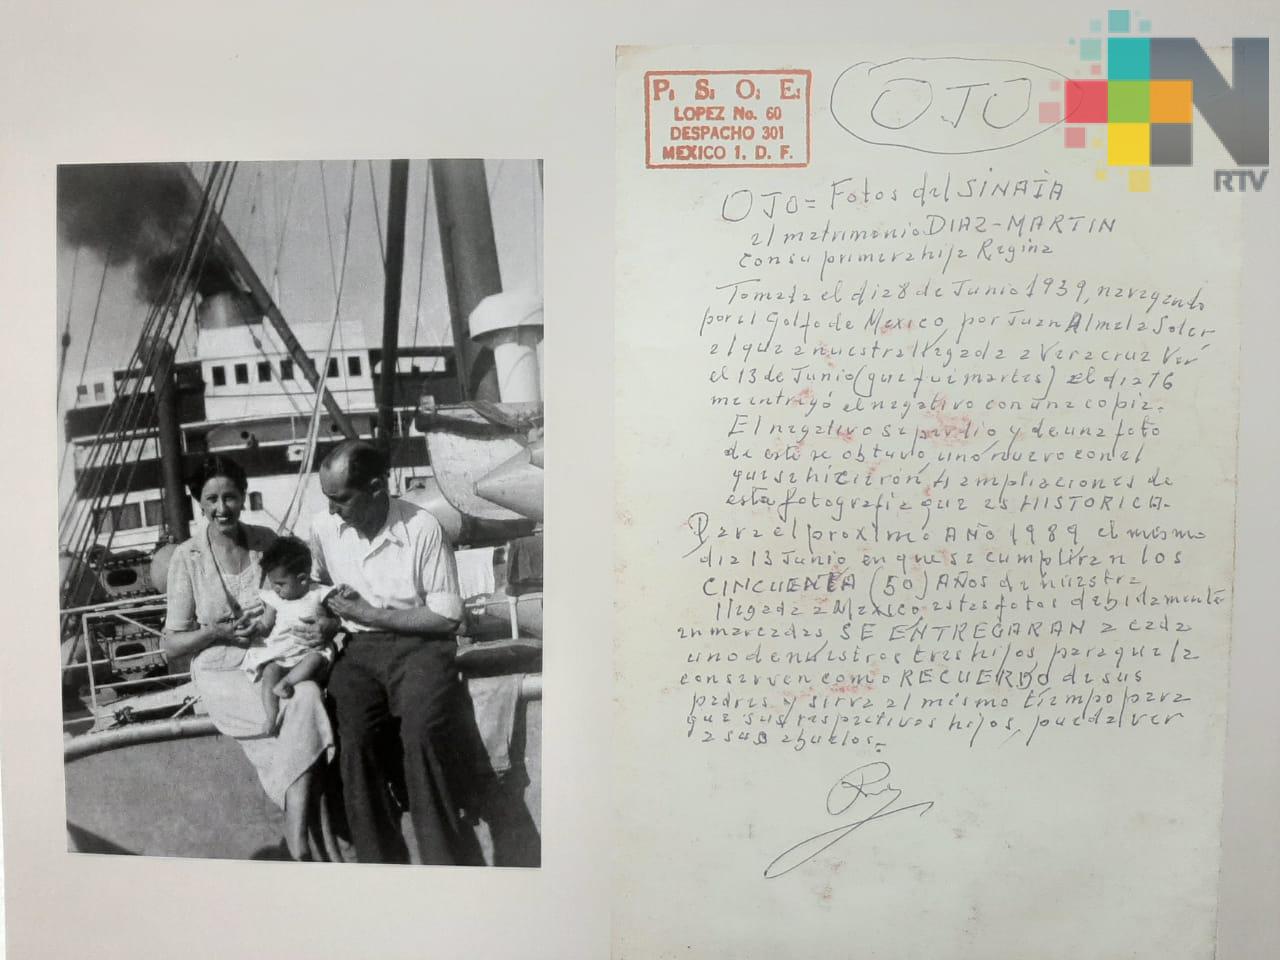 P. S. O. E.
LOPEZ No. 60
DESPACHO 301
MEXICO 1, D. F.
OJO
N
RTV
OJO = Fotos del SINAIA
al matrimonio DIAZ-MARTIN
con su primera hija Regina
Tomada el dia 8 de Junio 1939, navegando
por el Golfo de Mexico, por Juan Almela Soler
el que a nuestra llegada a Veracruz Ver
el 13 de Junio (que fué martes) el dia 16
me entregó el negativo con una copia.
El negativo se perdio y de una foto
de este se obtuvo uno nuevo con el
que se hicierón ampliaciones de
esta fotografia que es HISTORICA.
Para el proximo AÑO 1989 el mismo
dia 13 Junio en que se cumplirán los
CINCUENTA (50) AÑOS de nuestra
llegada a México, estas fotos debidamente
enmarcadas, SE ENTREGARAN a cada
uno de nuestros tres hijos para que la
conserven como RECUERDO de sus
padres y sirva al mismo tiempo para
que sus respectivos hijos, puedan ver
a sus abuelos.